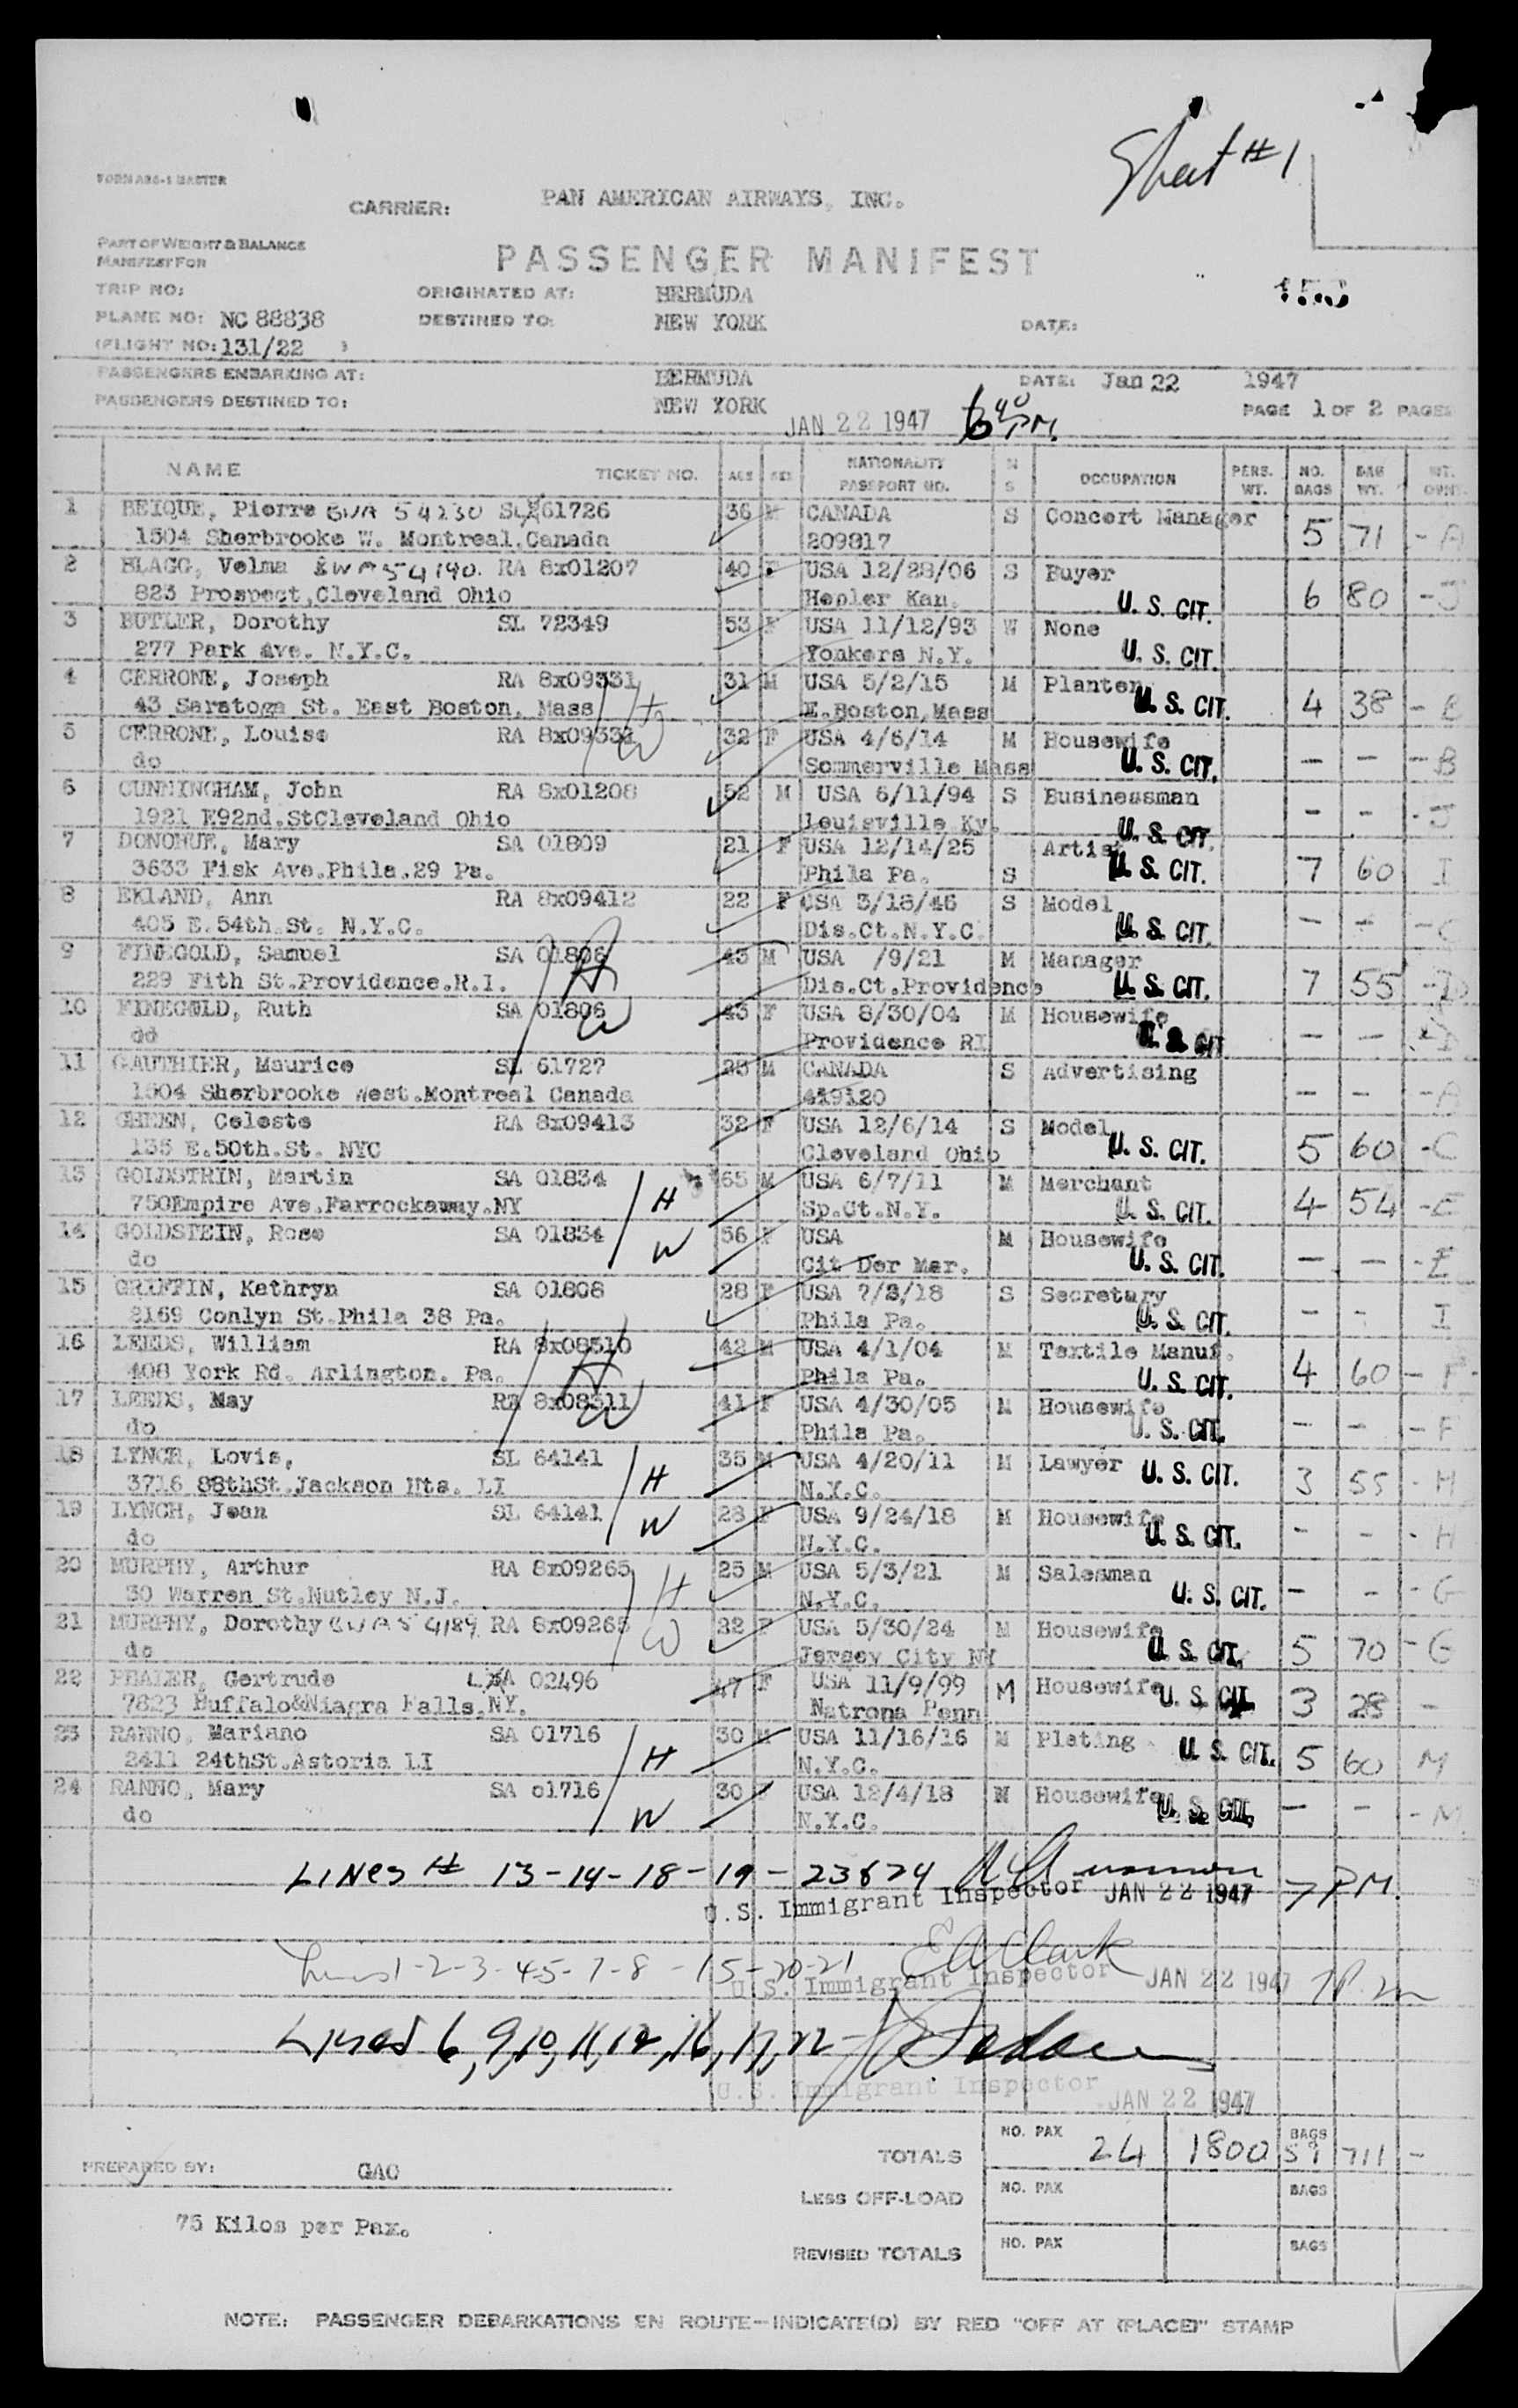 Sheet #1
FORM A86-1 MASTER
CARRIER: PAN AMERICAN AIRWAYS, INC.
PART OF WEIGHT & BALANCE
MANIFEST FOR
PASSENGER MANIFEST
TRIP NO: ORIGINATED AT: BERMUDA
PLANE NO: NC 88838 DESTINED TO: NEW YORK DATE:
(FLIGHT NO: 131/22 )
PASSENGERS EMBARKING AT: BERMUDA DATE: Jan 22 1947
PASSENGERS DESTINED TO: NEW YORK PAGE 1 OF 2 PAGES
JAN 22 1947 6 40 PM.
NAME TICKET NO. AGE SEX NATIONALITY PASSPORT NO. M S OCCUPATION PERS. WT. NO. BAGS BAG WT. WT. OVNT.
1 BEIQUE, Pierre BWA 54230 61726 36 CANADA S Concert Manager 5 71 - A
1504 Sherbrooke W. Montreal,Canada 209817
2 BLAGG, Velma BWA 54190. RA 8x01207 40 F USA 12/28/06 S Buyer 6 80 - J
823 Prospect,Cleveland Ohio Hepler Kan. U. S. CIT.
3 BUTLER, Dorothy SL 72349 53 F USA 11/12/93 W None
277 Park Ave. N.Y.C. Yonkers N.Y. U. S. CIT.
4 CERRONE, Joseph RA 8x09331 31 M USA 5/2/15 M Planter 4 38 - B
43 Saratoga St. East Boston, Mass H E.Boston,Mass U. S. CIT.
5 CERRONE, Louise RA 8x09331 W 32 F USA 4/6/14 M Housewife - - - B
do Sommerville Mass U. S. CIT.
6 CUNNINGHAM, John RA 8x01208 52 M USA 6/11/94 S Businessman - - - J
1921 E92nd.StCleveland Ohio Louisville Ky. U. S. CIT.
7 DONOHUE, Mary SA 01809 21 F USA 12/14/25 Artist 7 60 I
3633 Fisk Ave.Phila.29 Pa. Phila Pa. S U. S. CIT.
8 EKLAND, Ann RA 8x09412 22 F USA 3/18/46 S Model - - - C
405 E.54th.St. N.Y.C. Dis.Ct.N.Y.C. U. S. CIT.
9 FINEGOLD, Samuel SA 01806 H 45 M USA /9/21 M Manager 7 55 - D
229 Fith St.Providence.R.I. Dis.Ct.Providence U. S. CIT.
10 FINEGOLD, Ruth SA 01806 W 43 F USA 8/30/04 M Housewife - - - D
do Providence RI U. S. CIT
11 GAUTHIER, Maurice SL 61727 M CANADA S Advertising - - - A
1504 Sherbrooke West.Montreal Canada 419120
12 GREEN, Celeste RA 8x09413 32 F USA 12/6/14 S Model 5 60 - C
135 E.50th.St. NYC Cleveland Ohio U. S. CIT.
13 GOLDSTEIN, Martin SA 01834 H 65 M USA 6/7/11 M Merchant 4 54 - E
750Empire Ave.Farrockaway.NY Sp.Ct.N.Y. U. S. CIT.
14 GOLDSTEIN, Rose SA 01834 W 56 F USA M Housewife - - - E
do Cit Der Mar. U. S. CIT.
15 GRIFFIN, Kathryn SA 01808 28 F USA 7/3/18 S Secretary - - I
2169 Conlyn St.Phila 38 Pa. Phila Pa. U. S. CIT.
16 LEEDS, William RA 8x08510 H 42 M USA 4/1/04 M Textile Manuf. 4 60 - F
408 York Rd. Arlington. Pa. Phila Pa. U. S. CIT.
17 LEEDS, May RA 8x08511 W 41 F USA 4/30/05 M Housewife - - - F
do Phila Pa. U. S. CIT.
18 LYNCH, Lovis, SL 64141 H 35 M USA 4/20/11 M Lawyer U. S. CIT. 3 55 - H
3716 88thSt.Jackson Hts. LI N.Y.C.
19 LYNCH, Jean SL 64141 W 28 F USA 9/24/18 M Housewife - - - H
do N.Y.C. U. S. CIT.
20 MURPHY, Arthur RA 8x09265 H 25 M USA 5/3/21 M Salesman - - - G
30 Warren St.Nutley N.J. N.Y.C. U. S. CIT.
21 MURPHY, Dorothy BWA 54189 RA 8x09265 W 22 F USA 5/30/24 M Housewife 5 70 - G
do Jersey City NY U. S. CIT.
22 Gertrude 02496 47 F USA 11/9/99 M Housewife U. S. CIT. 3 28 -
7823 Buffalo&Niagra Falls.NY. Natrona Penn
23 RANNO, Mariano SA 01716 H 30 M USA 11/16/16 M Plating U. S. CIT. 5 60 M
2411 24thSt.Astoria LI N.Y.C.
24 RANNO, Mary SA 01716 W 30 F USA 12/4/18 M Housewife U. S. CIT. - - - M
do N.Y.C.
LINES # 13-14-18-19-23&24 7 PM.
U.S. Immigrant Inspector JAN 22 1947
Lines 1-2-3-4-5-7-8-15-20-21 E A Clark
U.S. Immigrant Inspector JAN 22 1947 7 P.M
Lines 6, 9, 10, 11, 12, 16, 17, 22
U.S. Immigrant Inspector JAN 22 1947
TOTALS NO. PAX 24 1800 BAGS 59 711 -
PREPARED BY: GAC
LESS OFF-LOAD NO. PAX BAGS
75 Kilos per Pax.
REVISED TOTALS NO. PAX BAGS
NOTE: PASSENGER DEBARKATIONS EN ROUTE—INDICATE(D) BY RED "OFF AT (PLACE)" STAMP